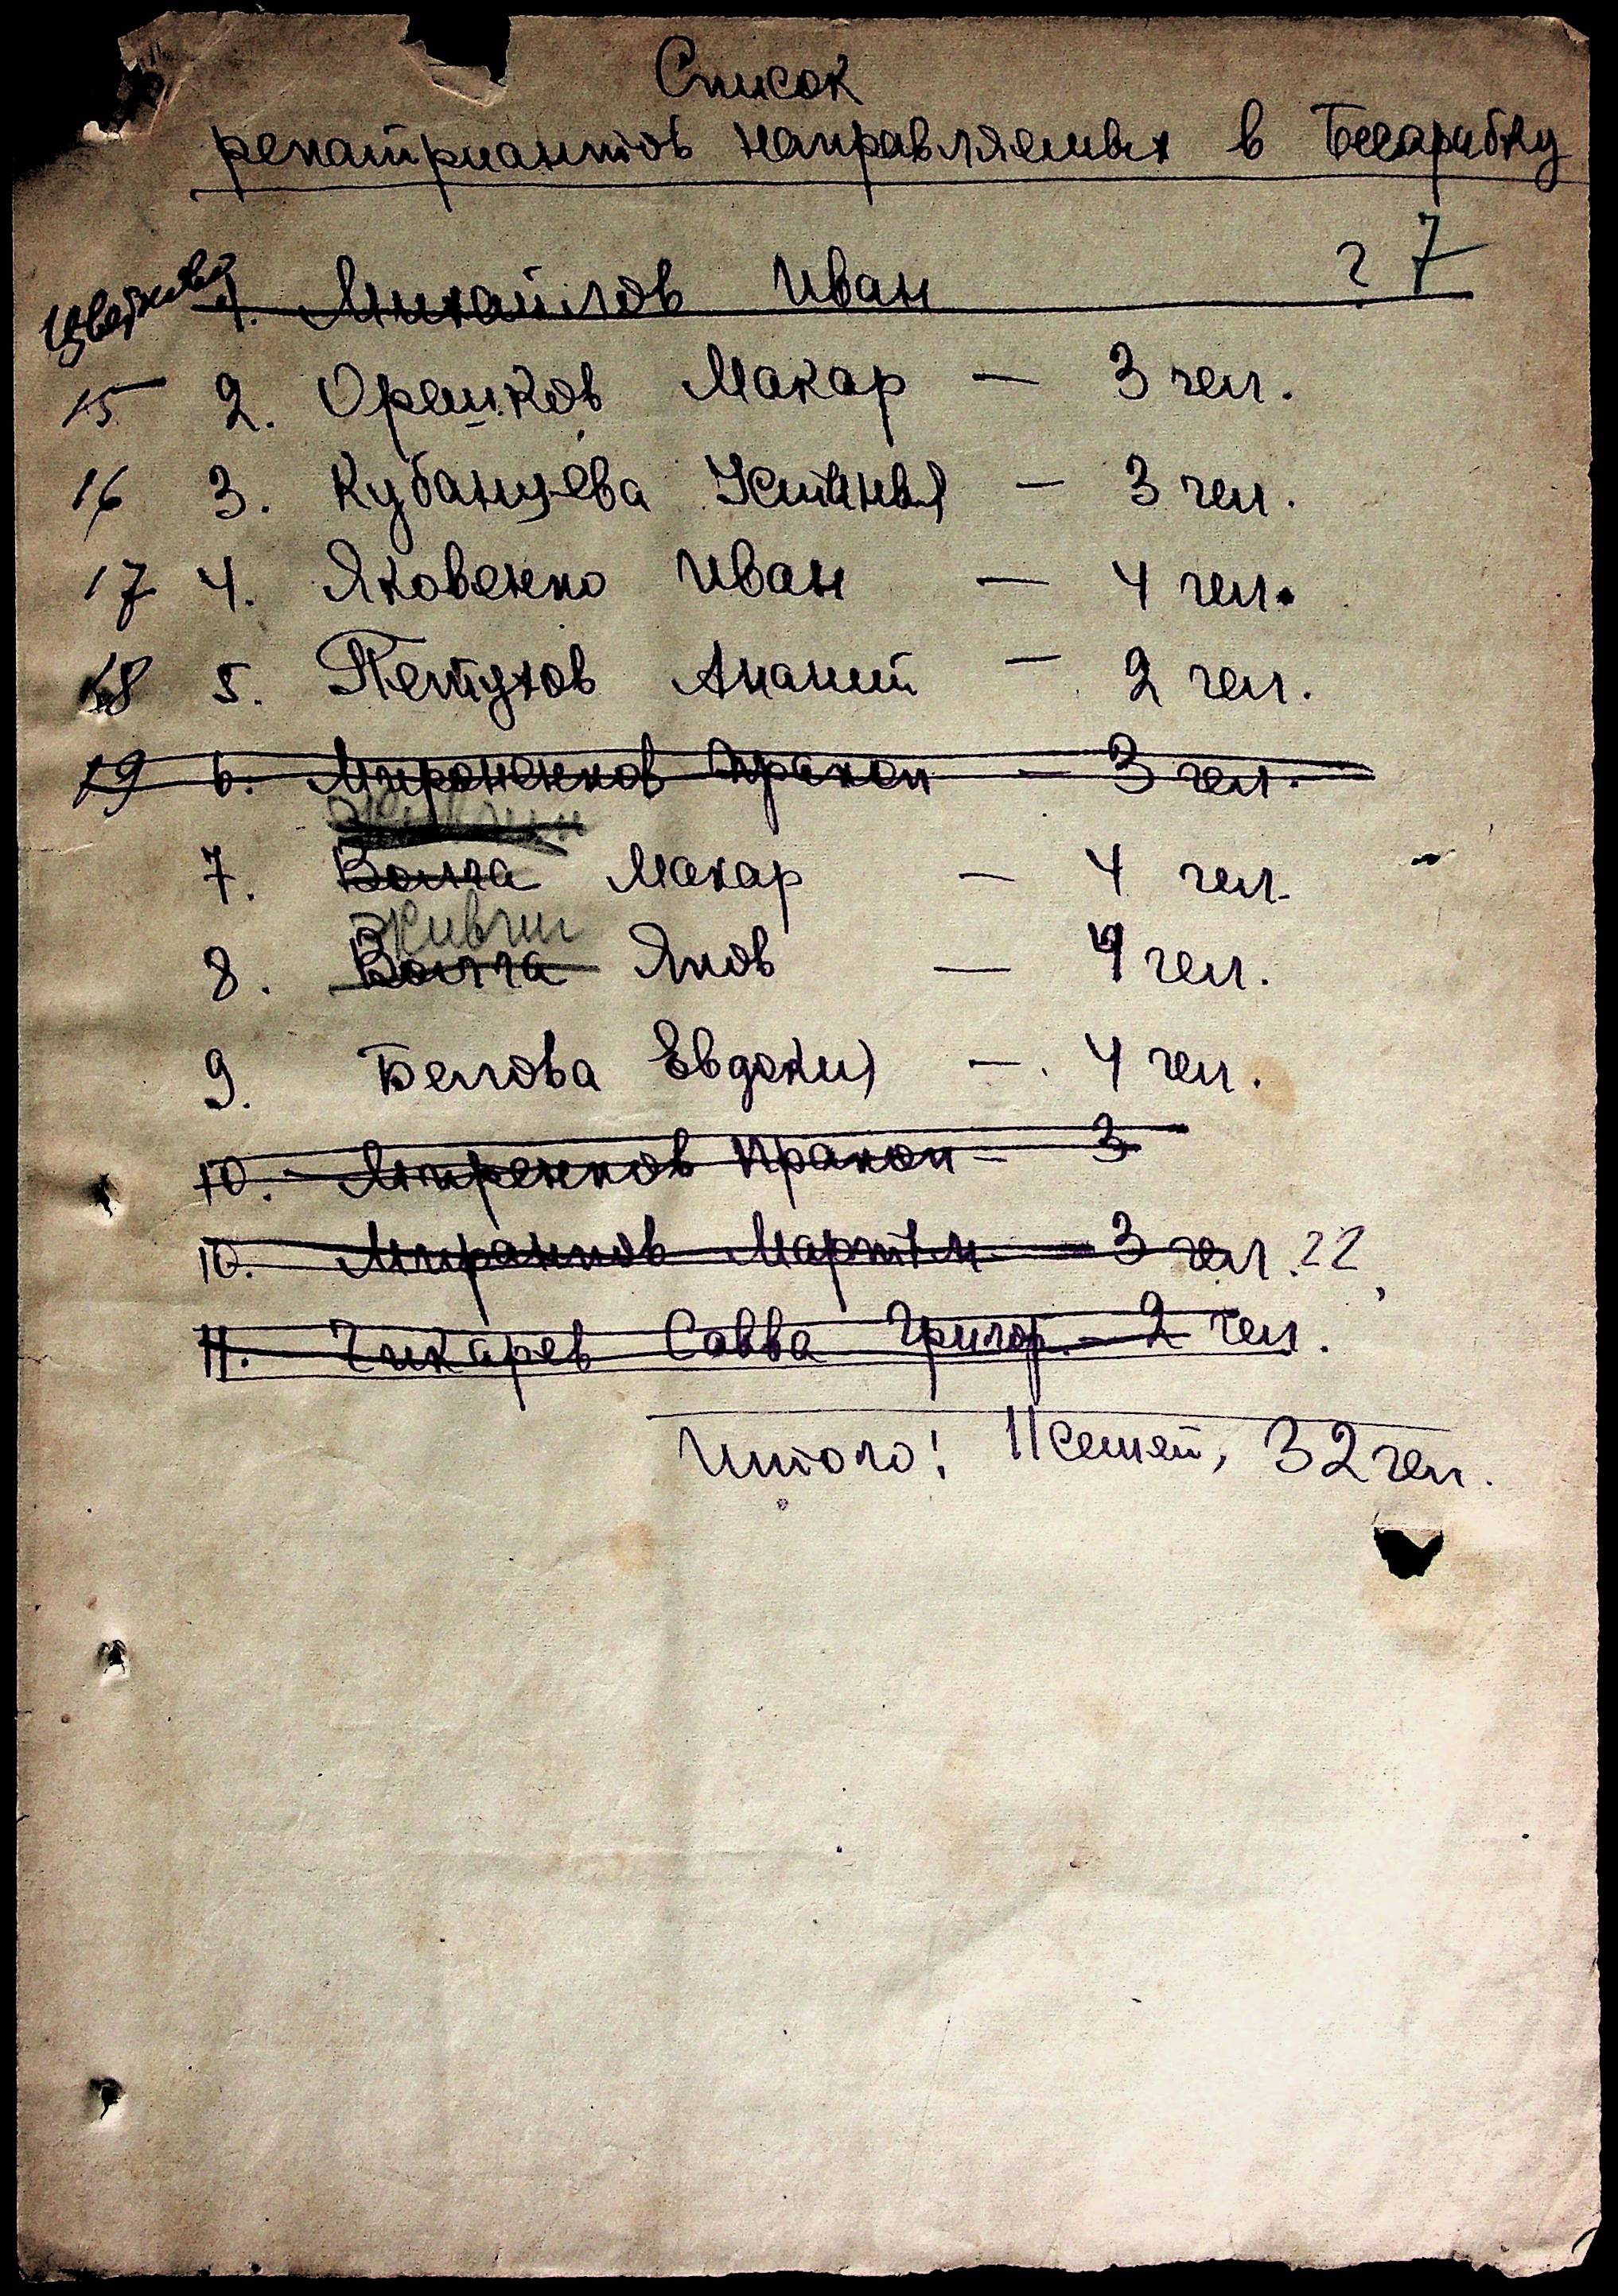 Список
репатриантов направляемых в Бесарабку
7
1. Михайлов Иван ?
15 2. Орешков Макар — 3 чел.
16 3. Кубанцева Устинья — 3 чел.
17 4. Яковенко Иван — 4 чел.
18 5. Петухов Ананий — 2 чел.
19 6. Мироненков Пракоп — 3 чел.
7. Волга Макар — 4 чел.
Живчин
8. Волга Яков — 4 чел.
9. Белова Евдокия — 4 чел.
10. Миренков Пракоп — 3
10. Мартын — 3 чел. 22
11. Чикарев Савва Григор. — 2 чел.
Итого! 11 семей, 32 чел.